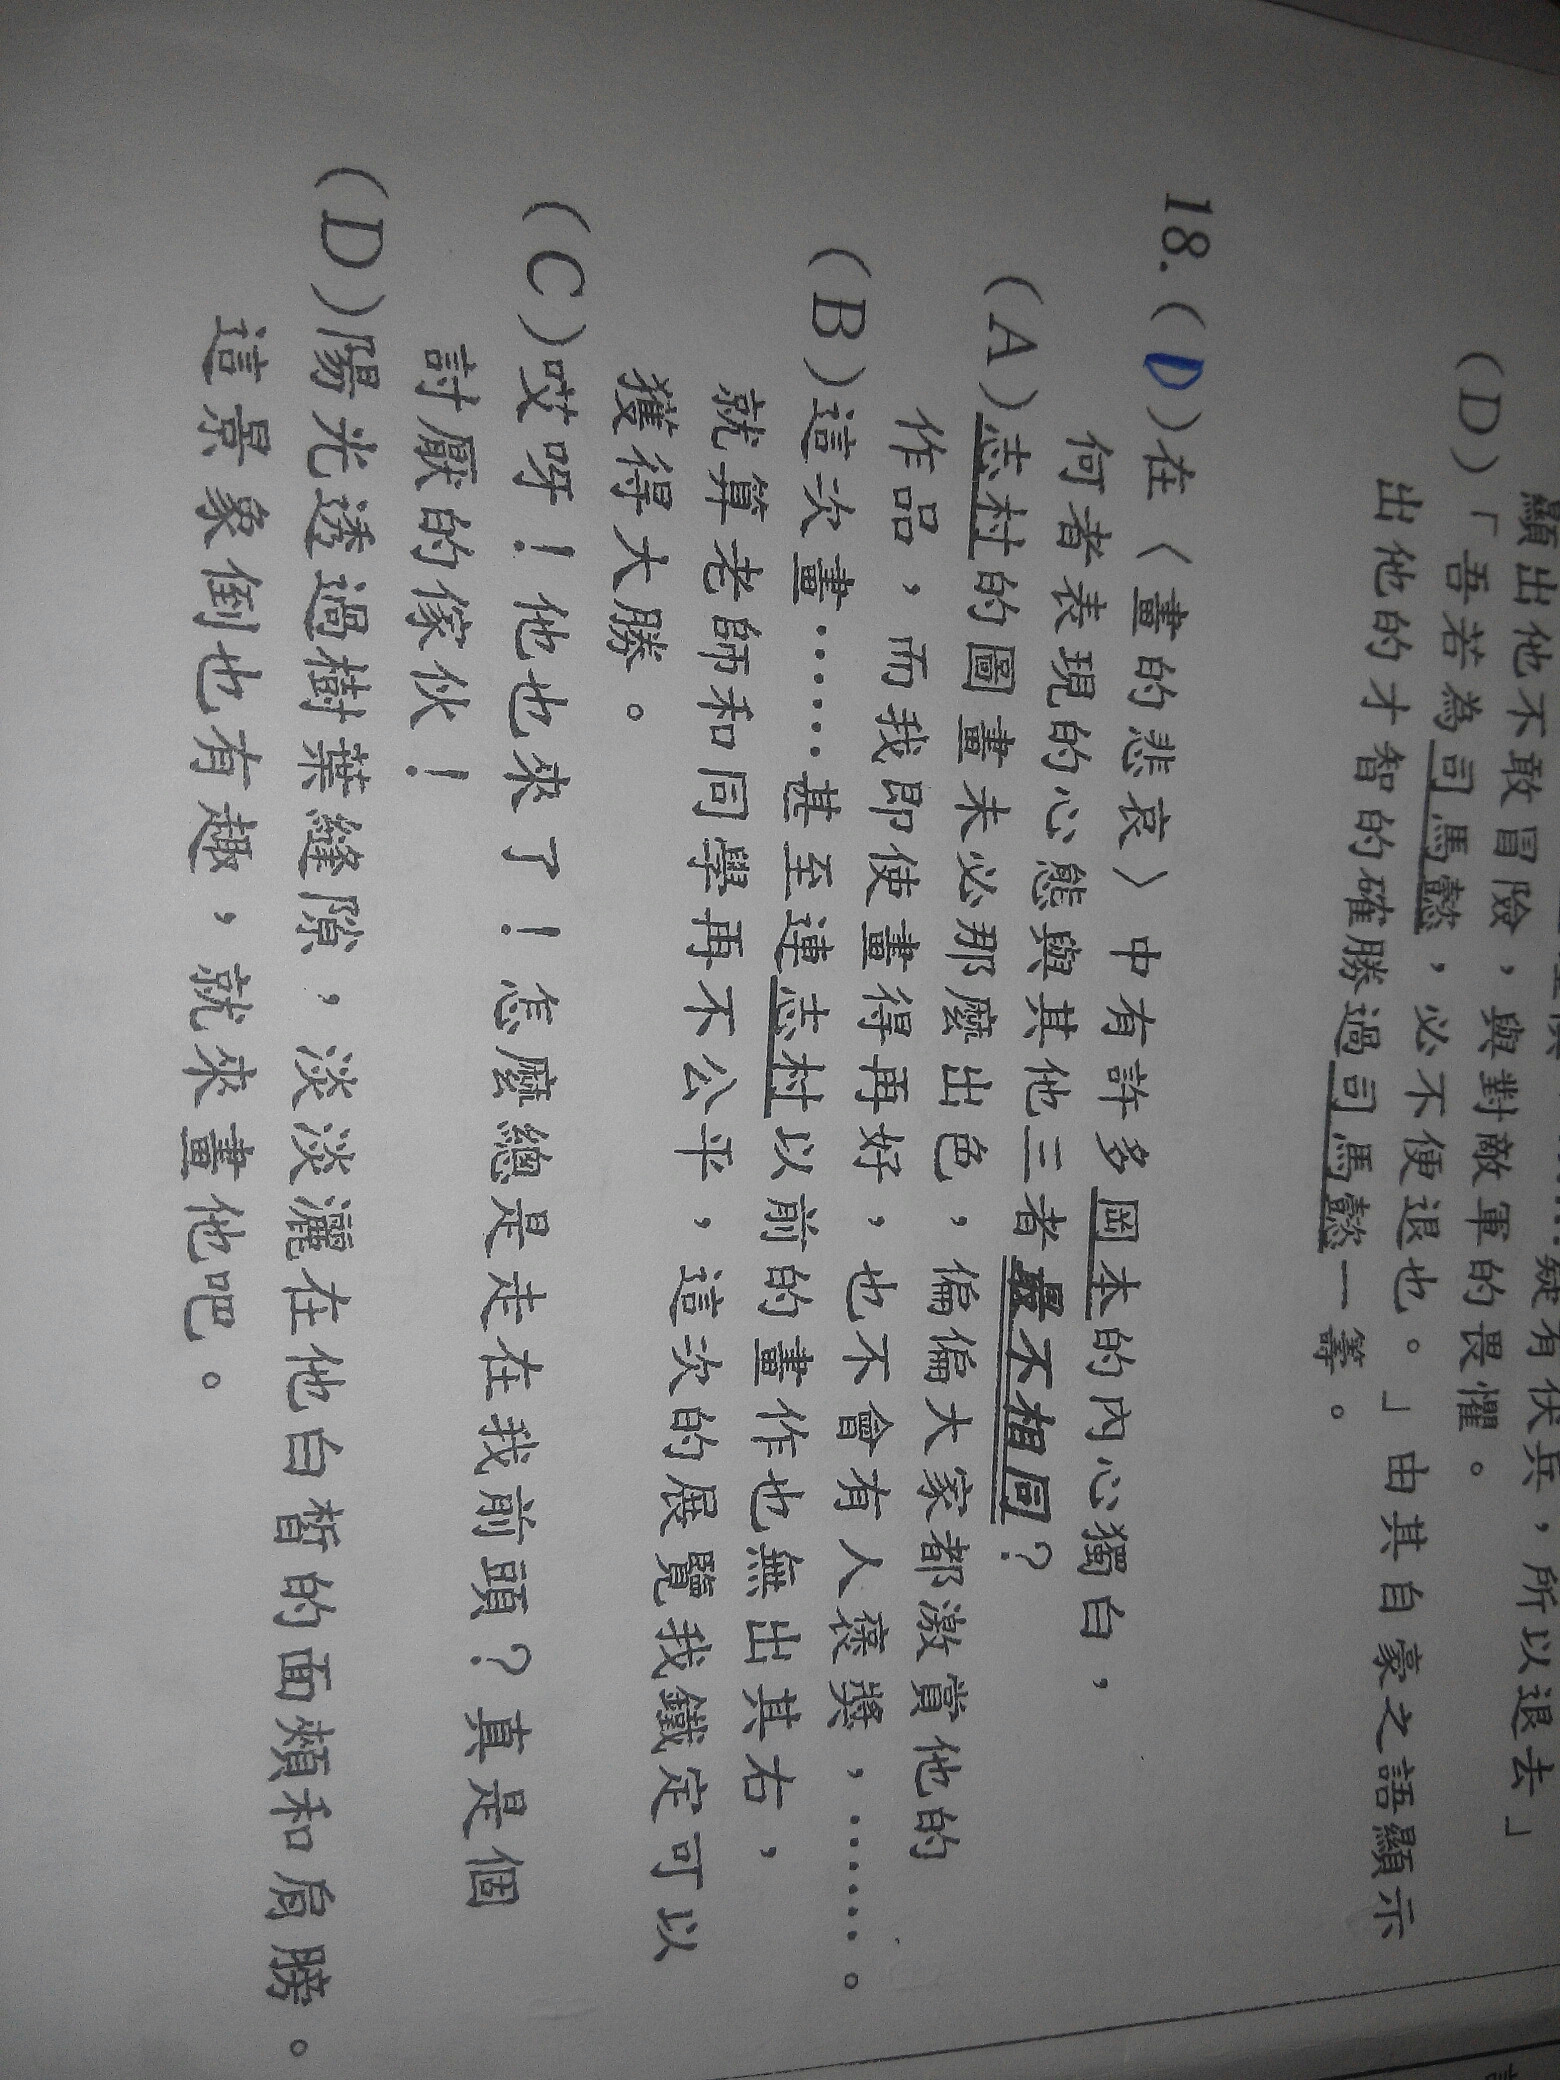 顯出他不敢冒險，與對敵軍的畏懼。
疑有伏兵，所以退去」
(D)「吾若為司馬懿，必不便退也。」由其自豪之語顯示
出他的才智的確勝過司馬懿一籌。
18.(D)在〈畫的悲哀〉中有許多岡本的內心獨白，
何者表現的心態與其他三者最不相同？
(A)志村的圖畫未必那麼出色，偏偏大家都激賞他的
作品，而我即使畫得再好，也不會有人褒獎，……。
(B)這次畫……甚至連志村以前的畫作也無出其右，
就算老師和同學再不公平，這次的展覽我鐵定可以
獲得大勝。
(C)哎呀！他也來了！怎麼總是走在我前頭？真是個
討厭的傢伙！
(D)陽光透過樹葉縫隙，淡淡灑在他白皙的面頰和肩膀。
這景象倒也有趣，就來畫他吧。